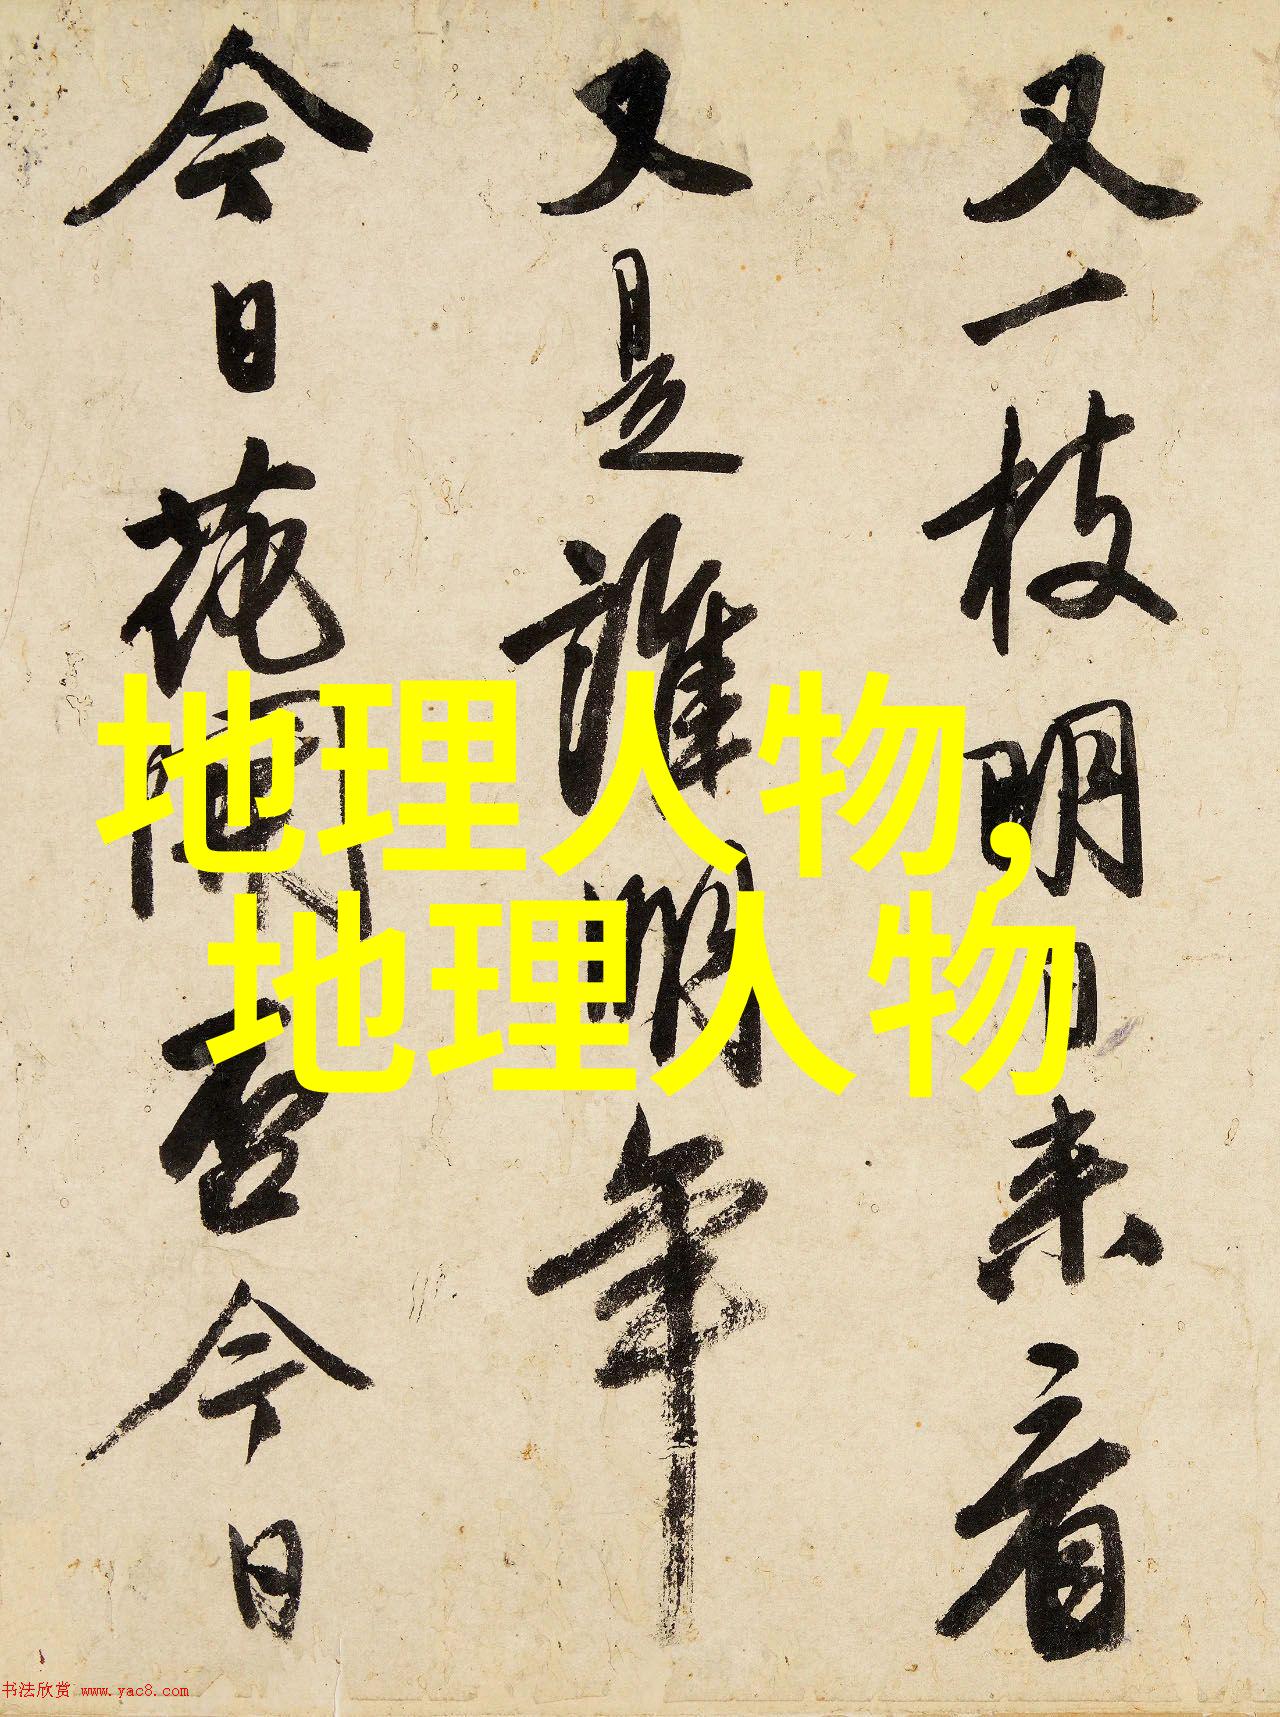 又一枝明日来看
又是誰明年
今日花開盃今日
地理人物,
地理人物
书法欣赏 www.yac8.com